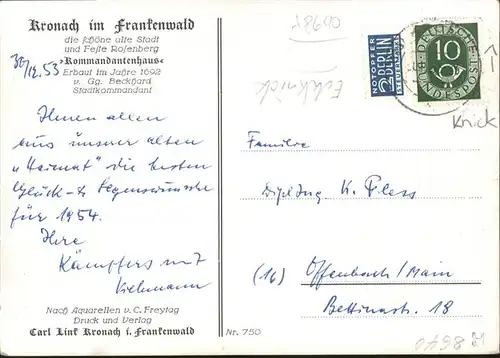 Kronach im Frankenwald
die schöne alte Stadt
und Feste Rosenberg
„Kommandantenhaus“
Erbaut im Jahre 1692
v. Gg. Beckhard
Stadtkommandant
30/12.53
Ihnen allen
aus unserer alten
„Heimat“ die besten
Glück- & Segenswünsche
für 1954.
Ihre
Kämpfers mit
Nach Aquarellen v. C. Freytag
Druck und Verlag
Carl Link Kronach i. Frankenwald
Nr. 750
Eckknick
NOTOPFER
2 BERLIN
STEUERMARKE
DEUTSCHE
10
BUNDESPOST
Knick
Familie
Dipl. Ing. K. Pless
(16) Offenbach/Main
Bettinastr. 18